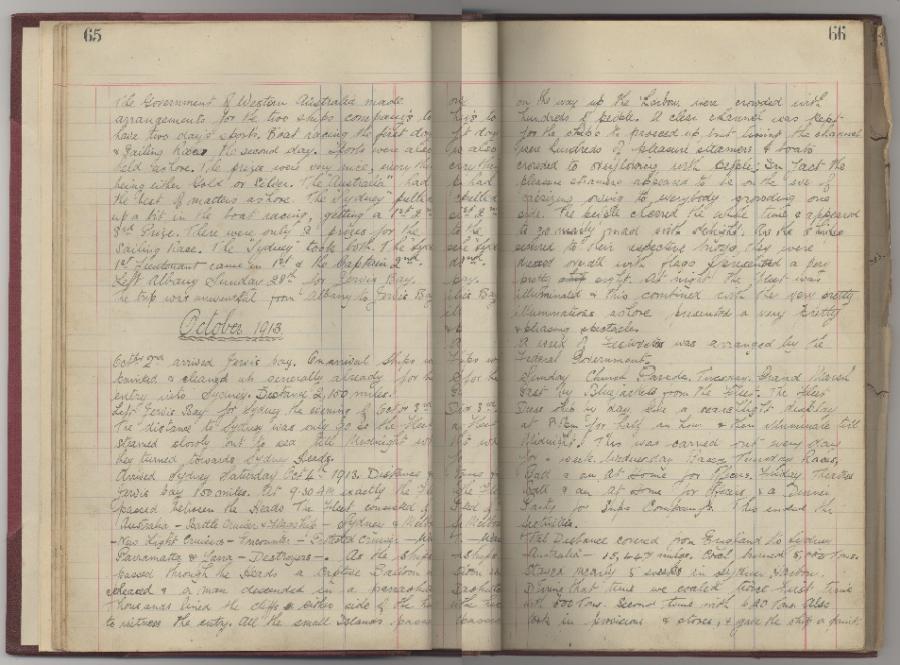 65
The Government of Western Australia made
arrangements for the two ships company's to
have two day's sports. Boat racing the first day
& Sailing Races the second day. Sports were also
held ashore. The prizes were very nice, every
being either Gold or Silver. The "Australia" had
the best of matters ashore. The Sydney pulled
up a bit in the boat racing, getting a 1st 2nd
3rd Prize. There were only 2 prizes for the
Sailing Race. The "Sydney" took both. The
1st Lieutenant came in 1st & the Captain 2nd.
Left Albany Sunday 28th for Jervis Bay.
The trip was uneventful from Albany to Jervis Bay
October 1913.
Oct 2nd arrived Jervis bay. On arrival Ships
painted & cleaned up generally already for the
entry into Sydney. Distance 2,100 miles.
Left Jervis Bay for Sydney the evening of Oct 3rd
The distance to Sydney was only 90 so the Fleet
steamed slowly out to sea till Midnight
they turned towards Sydney Heads.
Arrived Sydney Saturday Oct 4th 1913. Distance
Jervis bay 150 miles. At 9.30 AM exactly the
passed between the Heads The Fleet consisted of
Australia - Battle Cruiser & Flagship - Sydney & Melb
- New Light Cruisers - Encounter - Protected Cruiser -
Parramatta & Yarra - Destroyers -. As the ships
passed through the Heads a Captive Balloon
released & a man descended in a parachute
thousands lined the cliffs either side of the
to witness the entry. All the small Islands passed
66
on the way up the Harbour were crowded with
hundreds of people. A clear channel was kept
for the ships to proceed up, but lining the channel
were hundreds of pleasure steamers & boats
crowded to overflowing with people. In fact the
pleasure steamers appeared to be on the eve of
capsizing owing to everybody crowding one
side. The people cheered the whole time & appeared
to go nearly mad with delight. As the ships
secured to their respective buoys they were
dressed overall with flags & presented a very
pretty sight. At night the Fleet was
illuminated & this combined with the very pretty
illuminations ashore presented a very pretty
& pleasing spectacle.
A week of Festivities was arranged by the
Federal Government.
Sunday Church Parade. Tuesday. Grand March
Past by Bluejackets from the Fleet. The Fleet
Dress ship by day, give a searchlight display
at 8 pm for half an hour & then illuminate till
Midnight. This was carried out every day
for a week. Wednesday Races, Thursday Races,
Ball & an At Home for Officers. Friday Theatres
Ball & an At Home for Officers, & a Dinner
Party for Ships Company's. This ended the
festivities.
Total Distance covered from England to Sydney
Australia - miles. Coal burned tons.
Stayed nearly 5 weeks in Sydney Harbour.
During that time we coaled twice first time
with 500 Tons. Second time with Tons. Also
took in provisions & stores, & gave the ship a paint